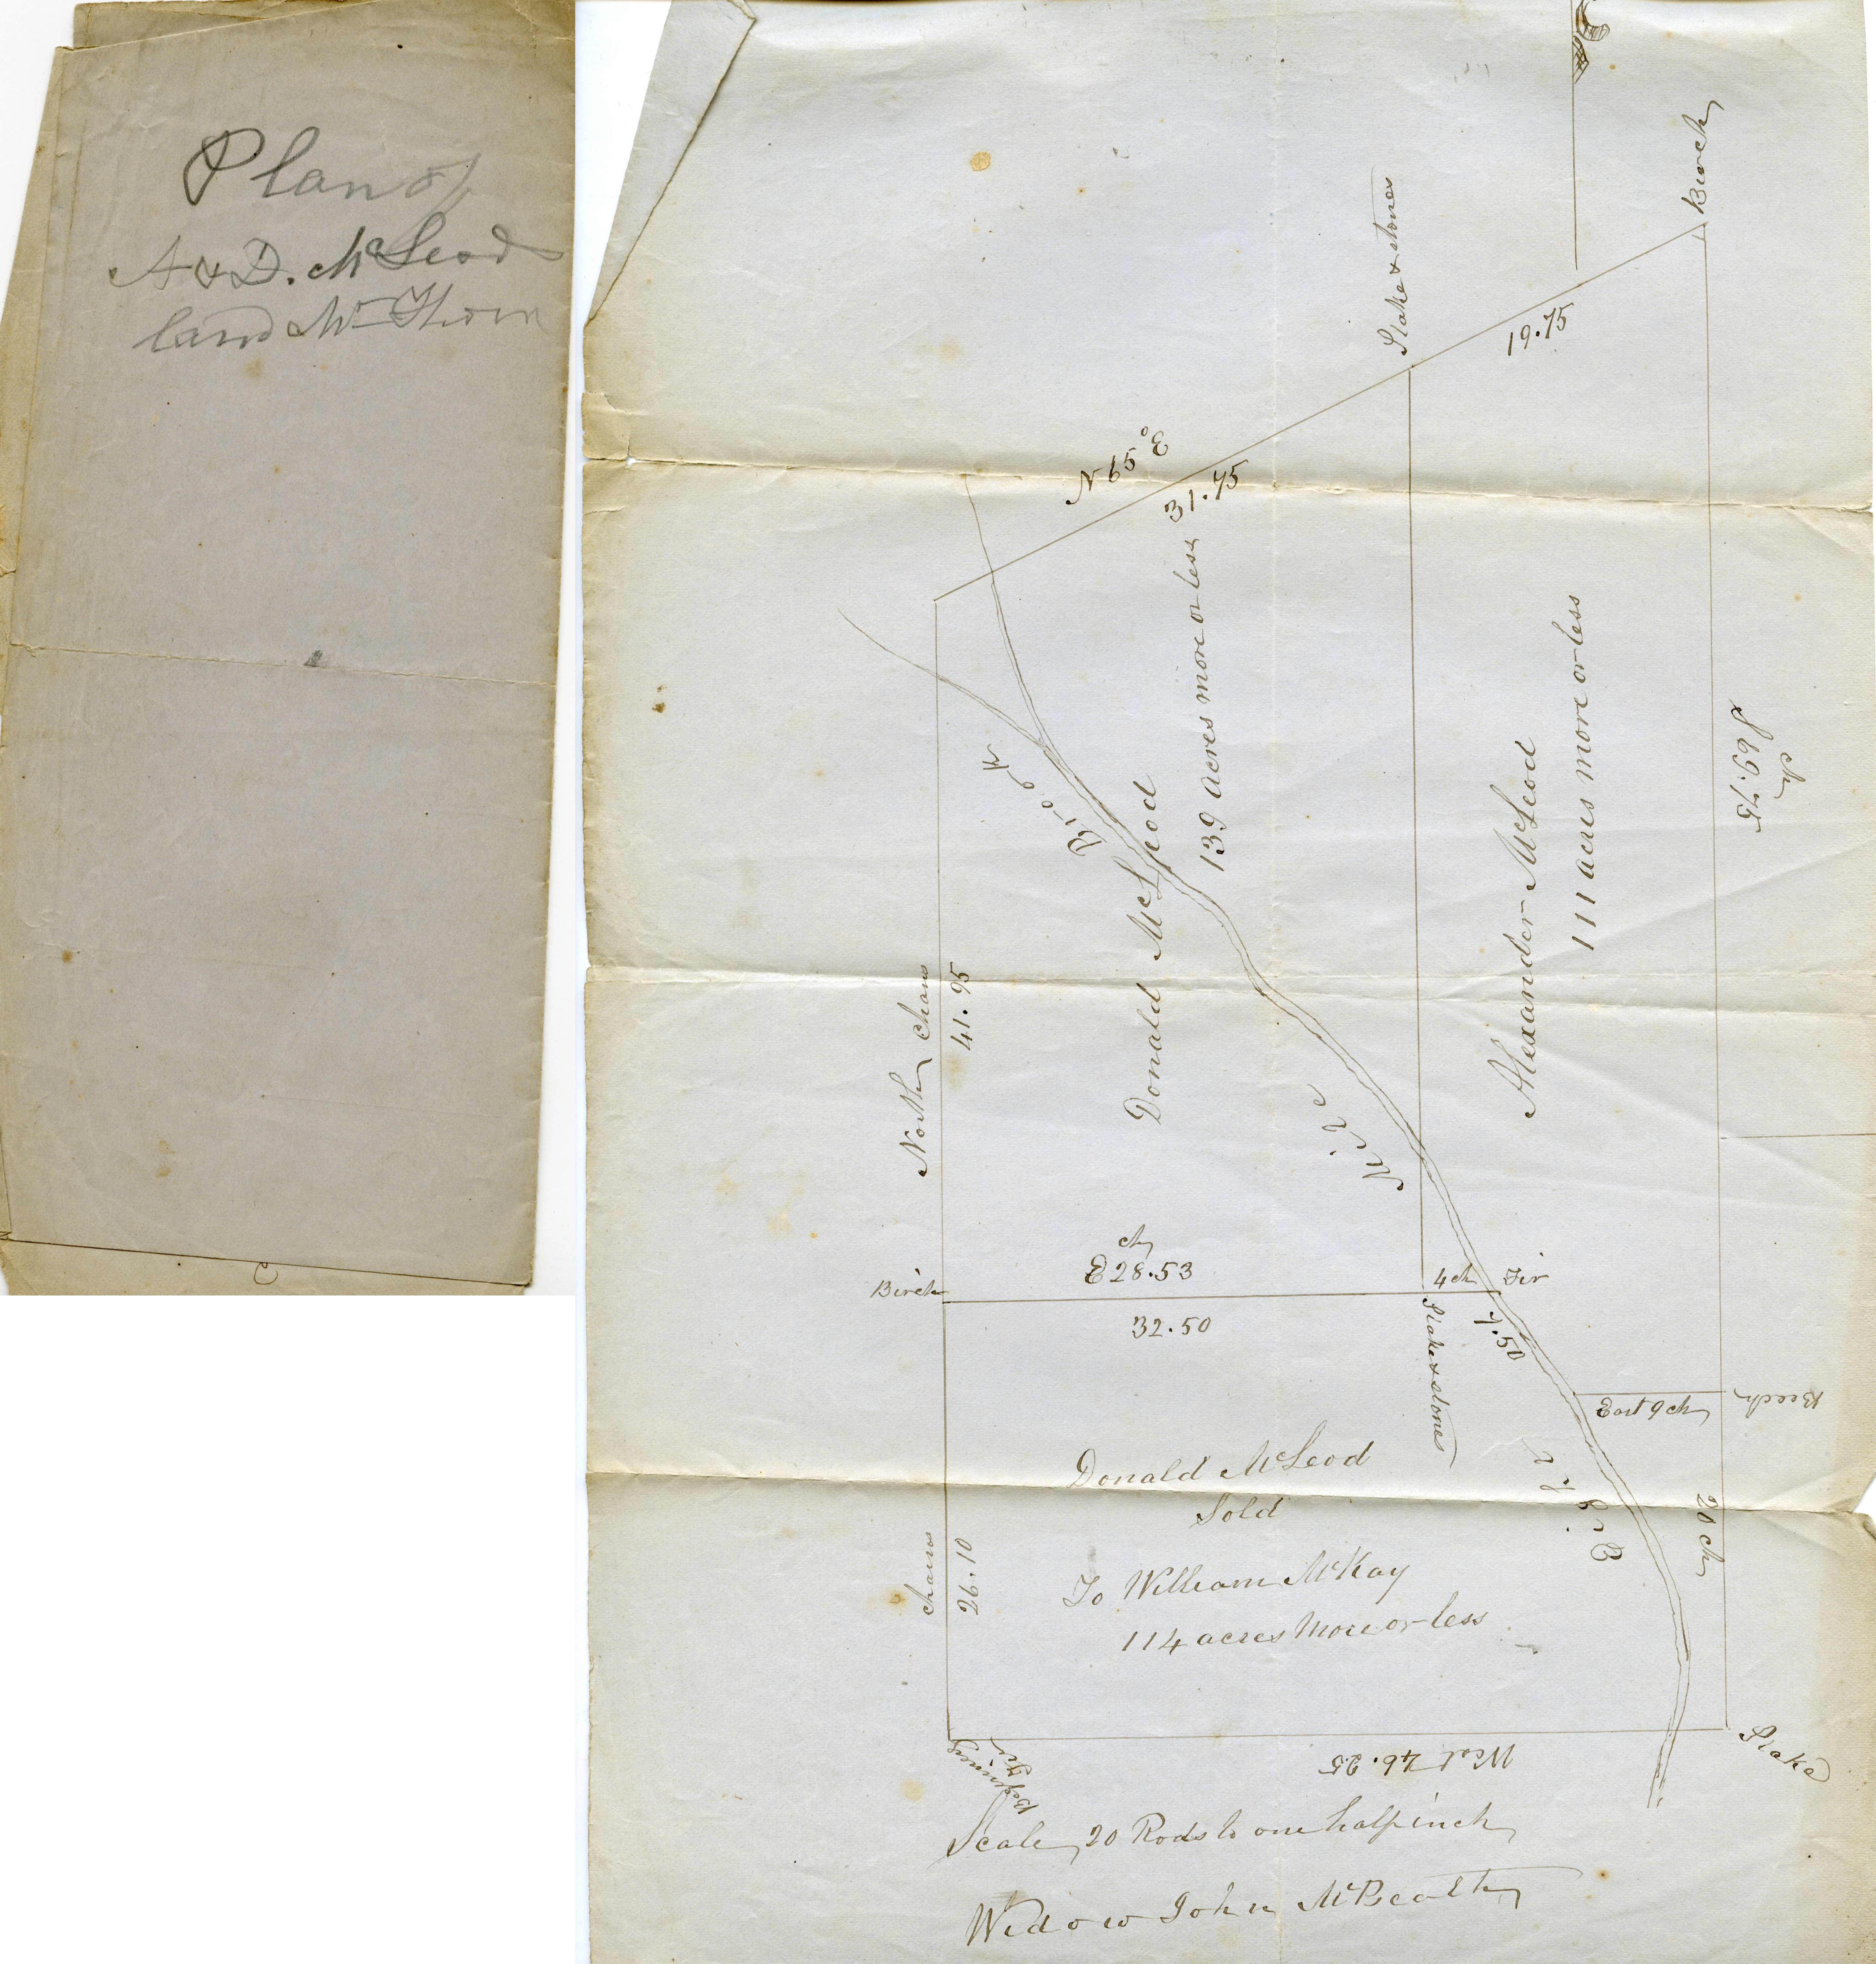 Plan of
A & D. McLeod
land Mt Thom
Birch
Stake & stones
19.75
N 65° E
31.75
139 acres more or less
Donald McLeod
Brook
Mile
Alexander McLeod
111 acres more or less
S 69.75
ch
North Chains
41.95
ch
E 28.53
Birch
32.50
4 ch
Fir
Stake & stones
East 9 ch
Beech
20 ch
Donald McLeod
Sold
To William McKay
114 acres more or less
chains
26.10
Beginning
Fir
West 46.25
Stake
Scale 20 Rods to one half inch
Widow John McBeath